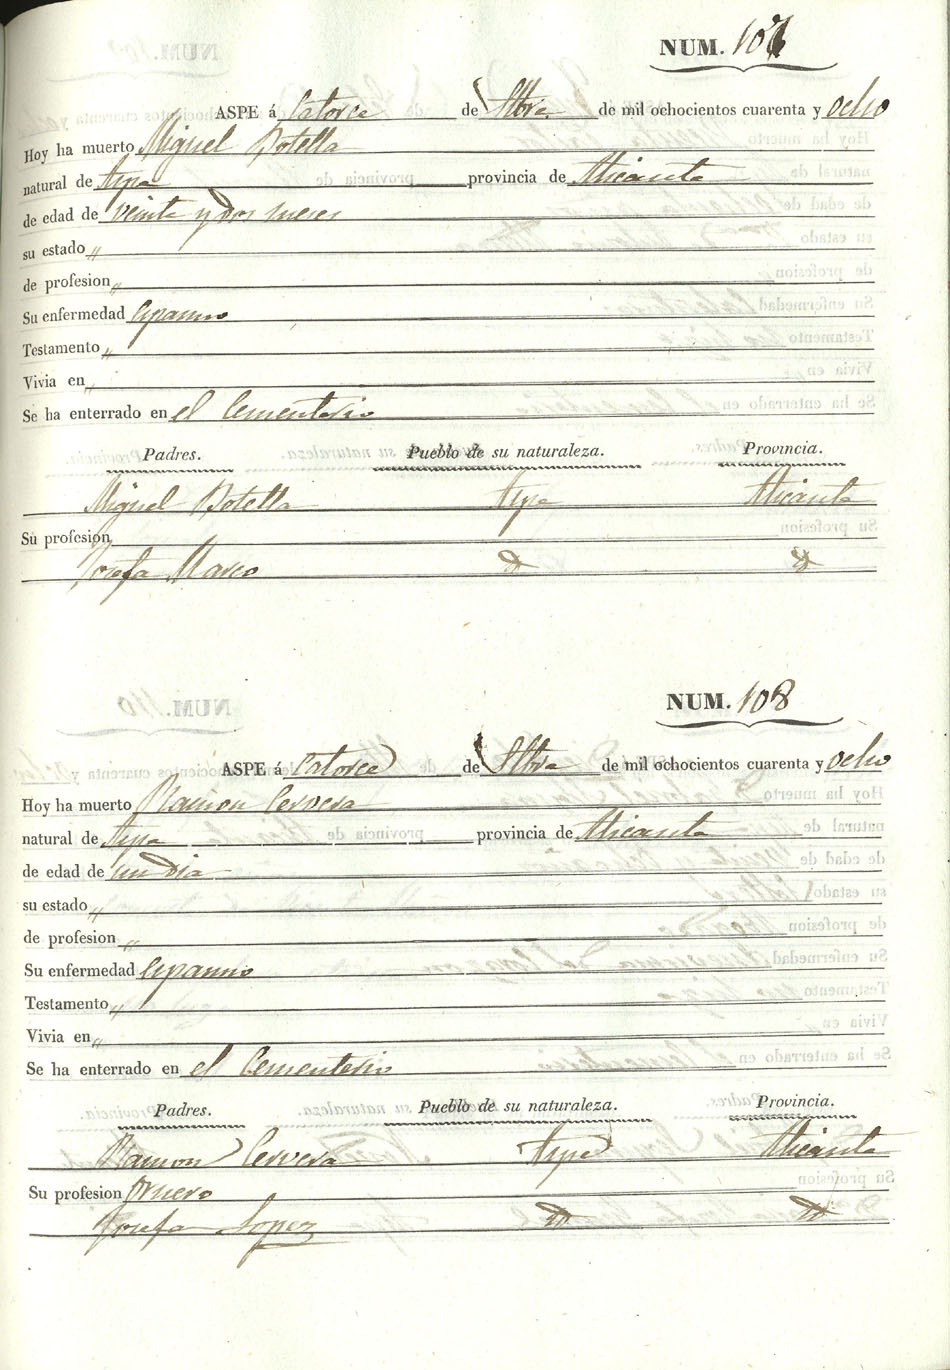 NUM. 107
ASPE á Catorce de 8bre de mil ochocientos cuarenta y ocho
Hoy ha muerto Miguel Botella
natural de Aspe provincia de Alicante
de edad de veinte y dos meses
su estado "
de profesion "
Su enfermedad Espasmo
Testamento "
Vivia en "
Se ha enterrado en el Cementerio
Padres. Pueblo de su naturaleza. Provincia.
Miguel Botella Aspe Alicante
Su profesion
Josefa Marco
NUM. 108
ASPE á Catorce de 8bre de mil ochocientos cuarenta y ocho
Hoy ha muerto Ramon Cervera
natural de Aspe provincia de Alicante
de edad de un dia
su estado "
de profesion "
Su enfermedad Espasmo
Testamento "
Vivia en "
Se ha enterrado en el Cementerio
Padres. Pueblo de su naturaleza. Provincia.
Ramon Cervera Aspe Alicante
Su profesion
Josefa Lopez